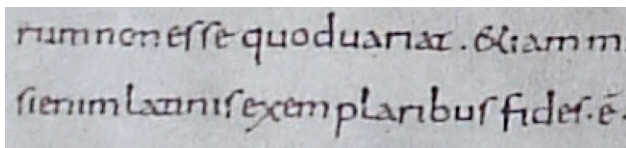 rum non esse quod uariat. &iam m
si enim latinis exemplaribus fides. ē.